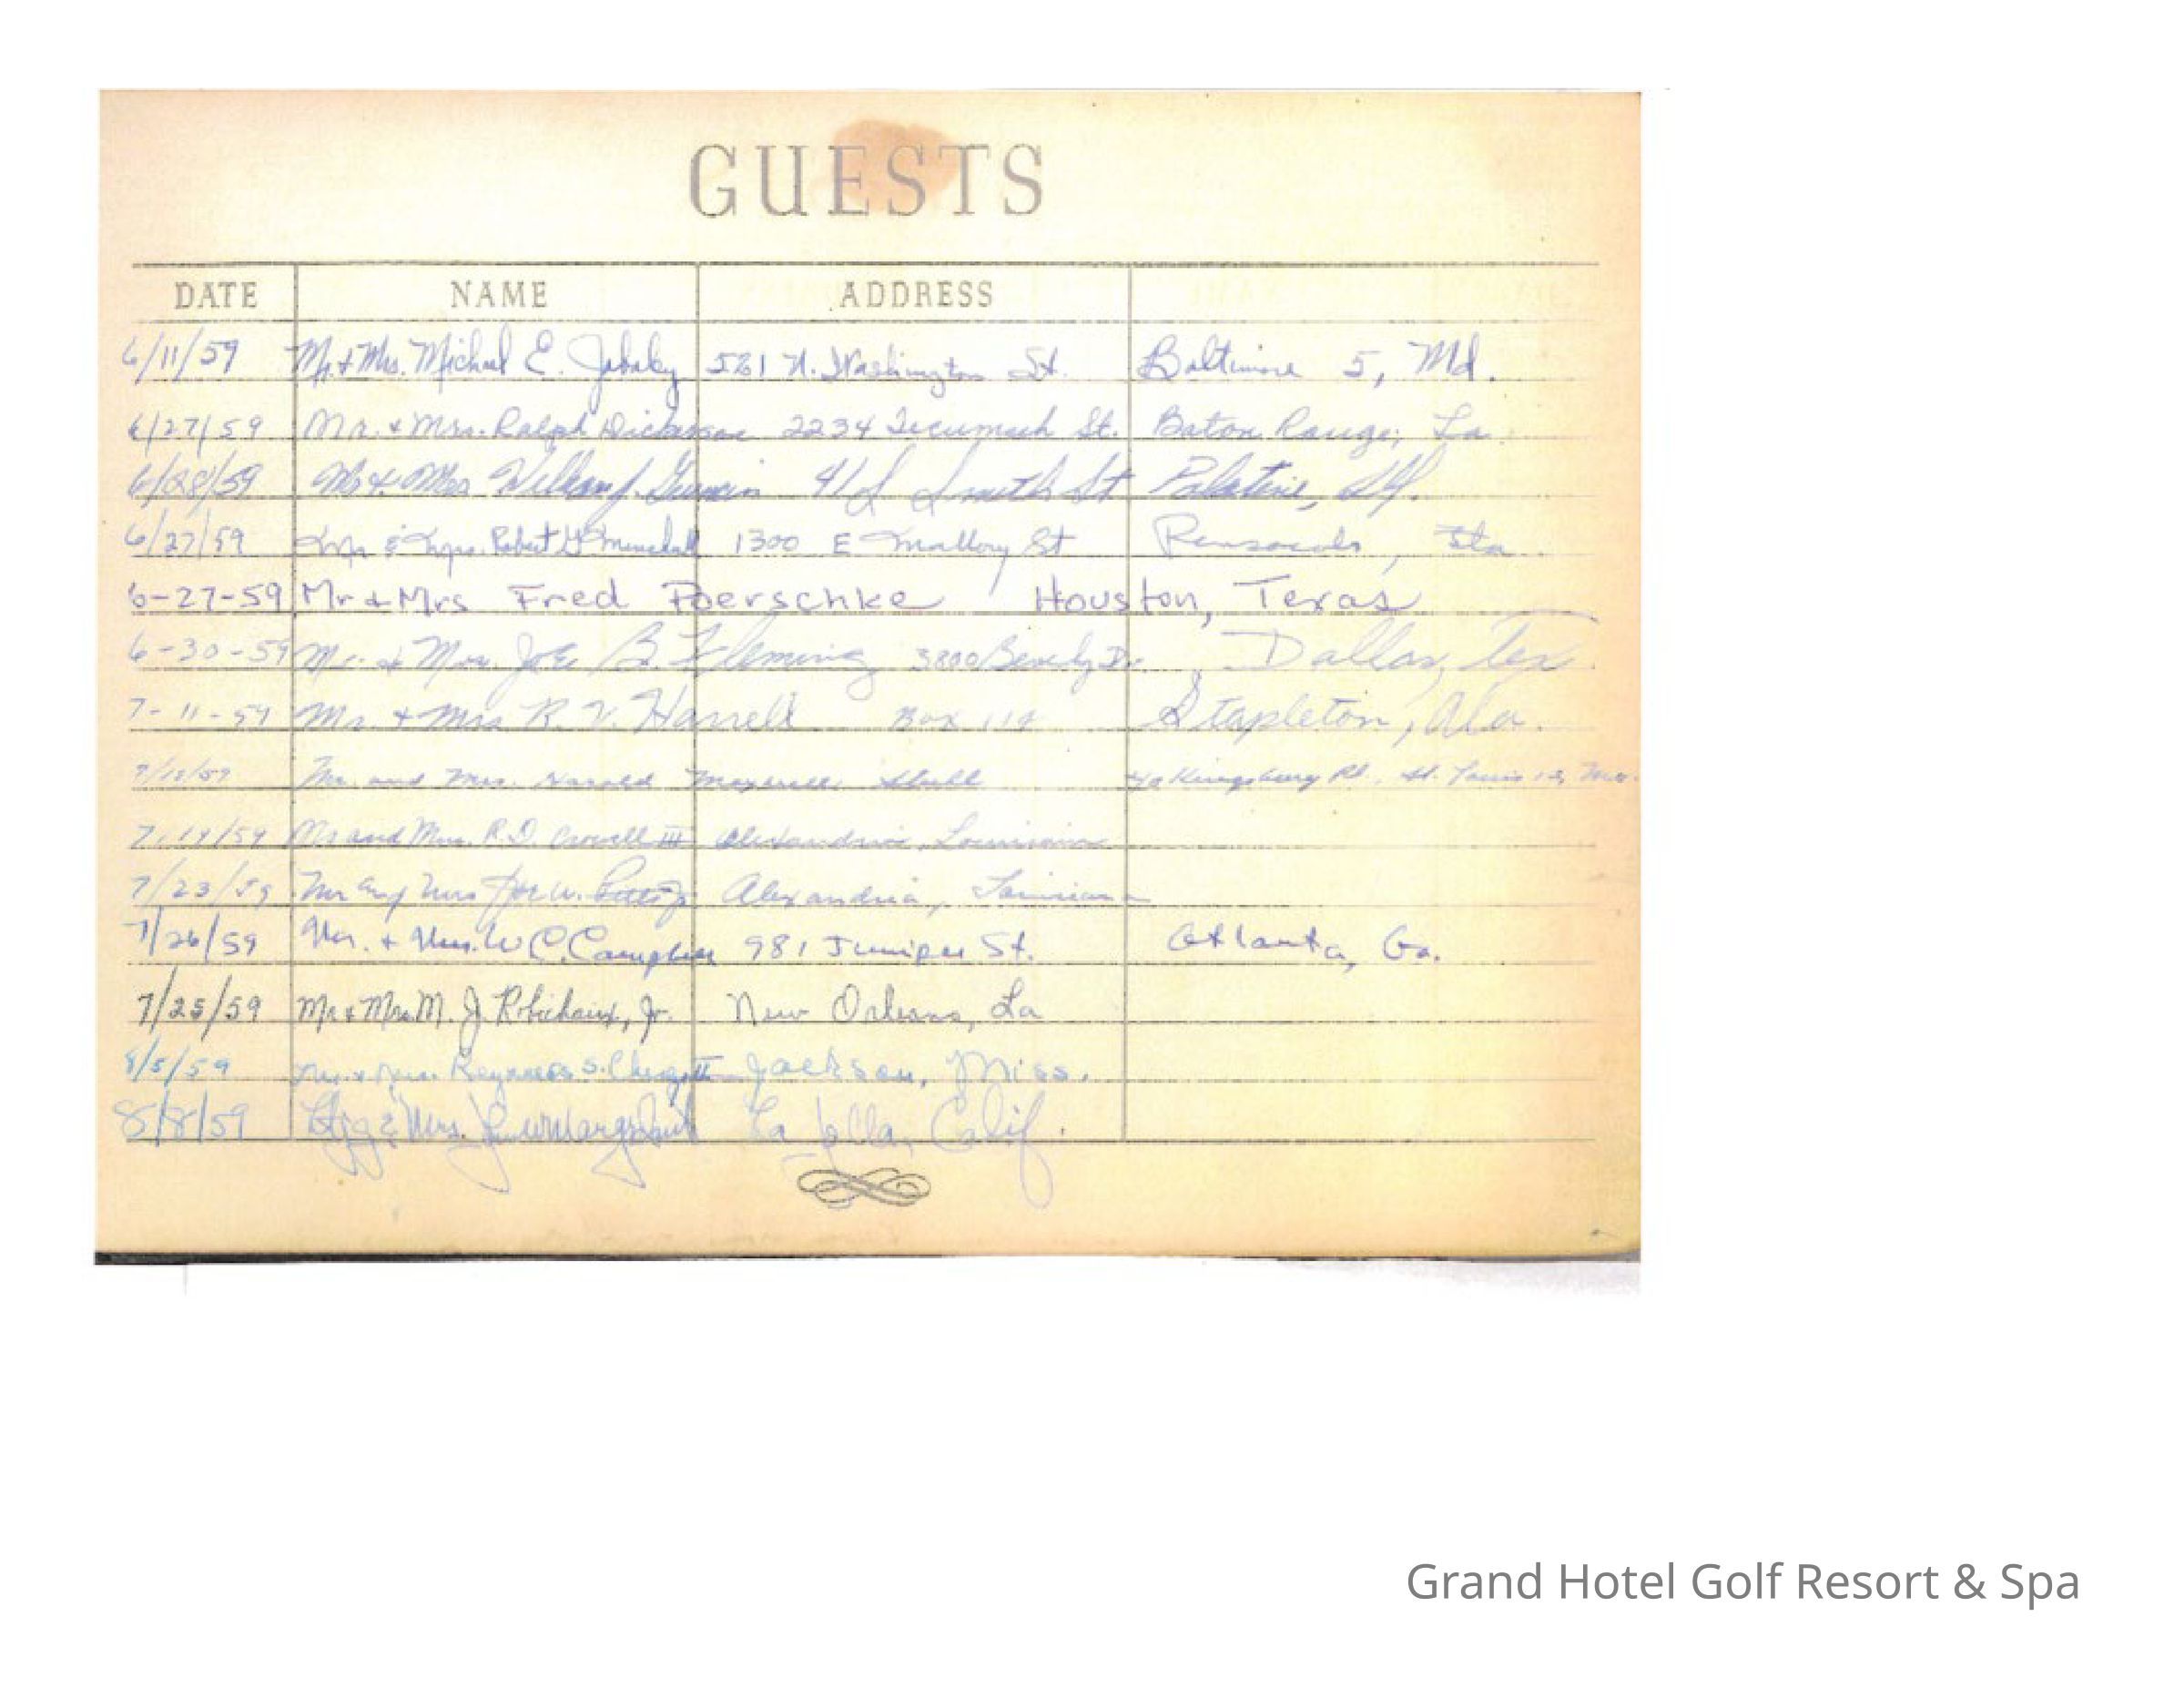 GUESTS
DATE NAME ADDRESS
6/11/59 Mr. & Mrs. Michael E. 521 N. Washington St. Baltimore 5, Md.
6/27/59 Mr. & Mrs. Ralph Dickerson 2234 Tecumseh St. Baton Rouge, La.
6/28/59 Mr & Mrs William J. 41 S Smith St Palatine, Ill.
6/27/59 Mr & Mrs. Robert G 1300 E Mallory St Pensacola, Fla.
6-27-59 Mr & Mrs Fred Poerschke Houston, Texas
6-30-59 Mr. & Mrs. Joe B. Fleming 3800 Beverly Dr. Dallas, Tex.
7-11-59 Mr. & Mrs R. V. Harrell Box 114 Stapleton, Ala.
Mr. and Mrs. Harold 40 Kingsbury Pl. St. Louis 12, Mo.
7/14/59 Mr and Mrs. R.D. Crowell III Alexandria, Louisiana
7/23/59 Mr and Mrs Joe W. Alexandria, Louisiana
7/26/59 Mr. & Mrs. W C. Campbell 981 Juniper St. Atlanta, Ga.
7/25/59 Mr & Mrs. M. J. Robichaux, Jr. New Orleans, La
8/5/59 Mr. & Mrs. Reynolds S. II Jackson, Miss.
8/8/59 & Mrs. La Jolla, Calif.
Grand Hotel Golf Resort & Spa